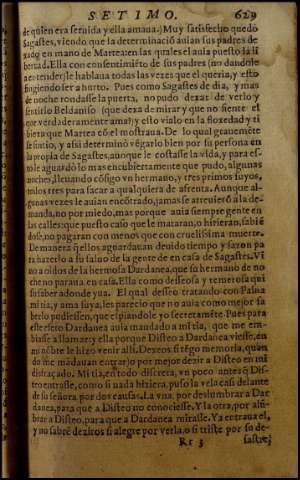 SETIMO. 629
de quien era seruida y ella amaua.) Muy satisfecho quedò
Sagastes, viendo que la determinaciõ auian sus padres de
xado en mano de Martea: en las quales el auia puesto la li
bertad. Ella con consentimiẽto de sus padres (no dandole
a entender) le hablaua todas las vezes que el queria, y esto
fingiendo ser a hurto. Pues como Sagastes de dia, y mas
de noche rondasse la puerta, no pudo dexar de verlo y
sentirlo Beldanisio (que dexa de mirar y que no siente el
que verdaderamente ama?) y esto vialo en la floxedad y ti
bieza que Martea co el mostraua. De lo qual grauemẽte
se sintio, y assi determinò vẽgarlo bien por su persona en
la propia de Sagastes, aunque le costasse la vida, y para es-
to le aguardò lo mas encubiertamente que pudo, algunas
noches, lleuando cõsigo vn hermano, y tres primos suyos,
todos tres para sacar a qualquiera de afrenta. Aunque al-
gunas vezes le auian encõtrado, jamas se atreuierõ a la de-
manda, no por miedo, mas porque auia siempre gente en
las calles: que puesto caso que le mataran, o hirieran, sabiẽ
dose, no pagaran con menos que con cruelissima muerte.
De manera q̃ ellos aguardauan deuido tiempo y sazon pa
ra hazerlo a su saluo de la gente de en casa de Sagastes. Vi
no a oidos de la hermosa Dardanea, que su hermano de no
che no paraua en casa. Ella como desseosa y temerosa qui
so saber adonde yua. El qual desseo tratando con Palna
mi tia, y ama suya, les parecio que no auia como mejor sa
berlo pudiessen, que espiandole yo secretamẽte. Pues para
este efeto Dardanea auia mandado a mi tia, que me em-
biasse a llamar: y ella porque Disteo a Dardanea viesse, en
mi nõbre le hizo venir alli. Dezir os si tẽgo memoria, quan
do me mãdauan entrar) o por mejor dezir a Disteo en mi
disfraçado. Mi tia, en todo discreta, vn poco antes q̃ Dis-
teo entrasse, como si nada hiziera, puso la vela casi delante
de su señora, por dos causas. La vna por deslumbrar a Dar
danea, para que a Disteo no conociesse. Y la otra, por alũ-
brar a Disteo, para que a Dardanea mirasse. Ya entraua el,
y no sabrè deziros si alegre por verla, o si triste por su de-
Rr 3 sastre,